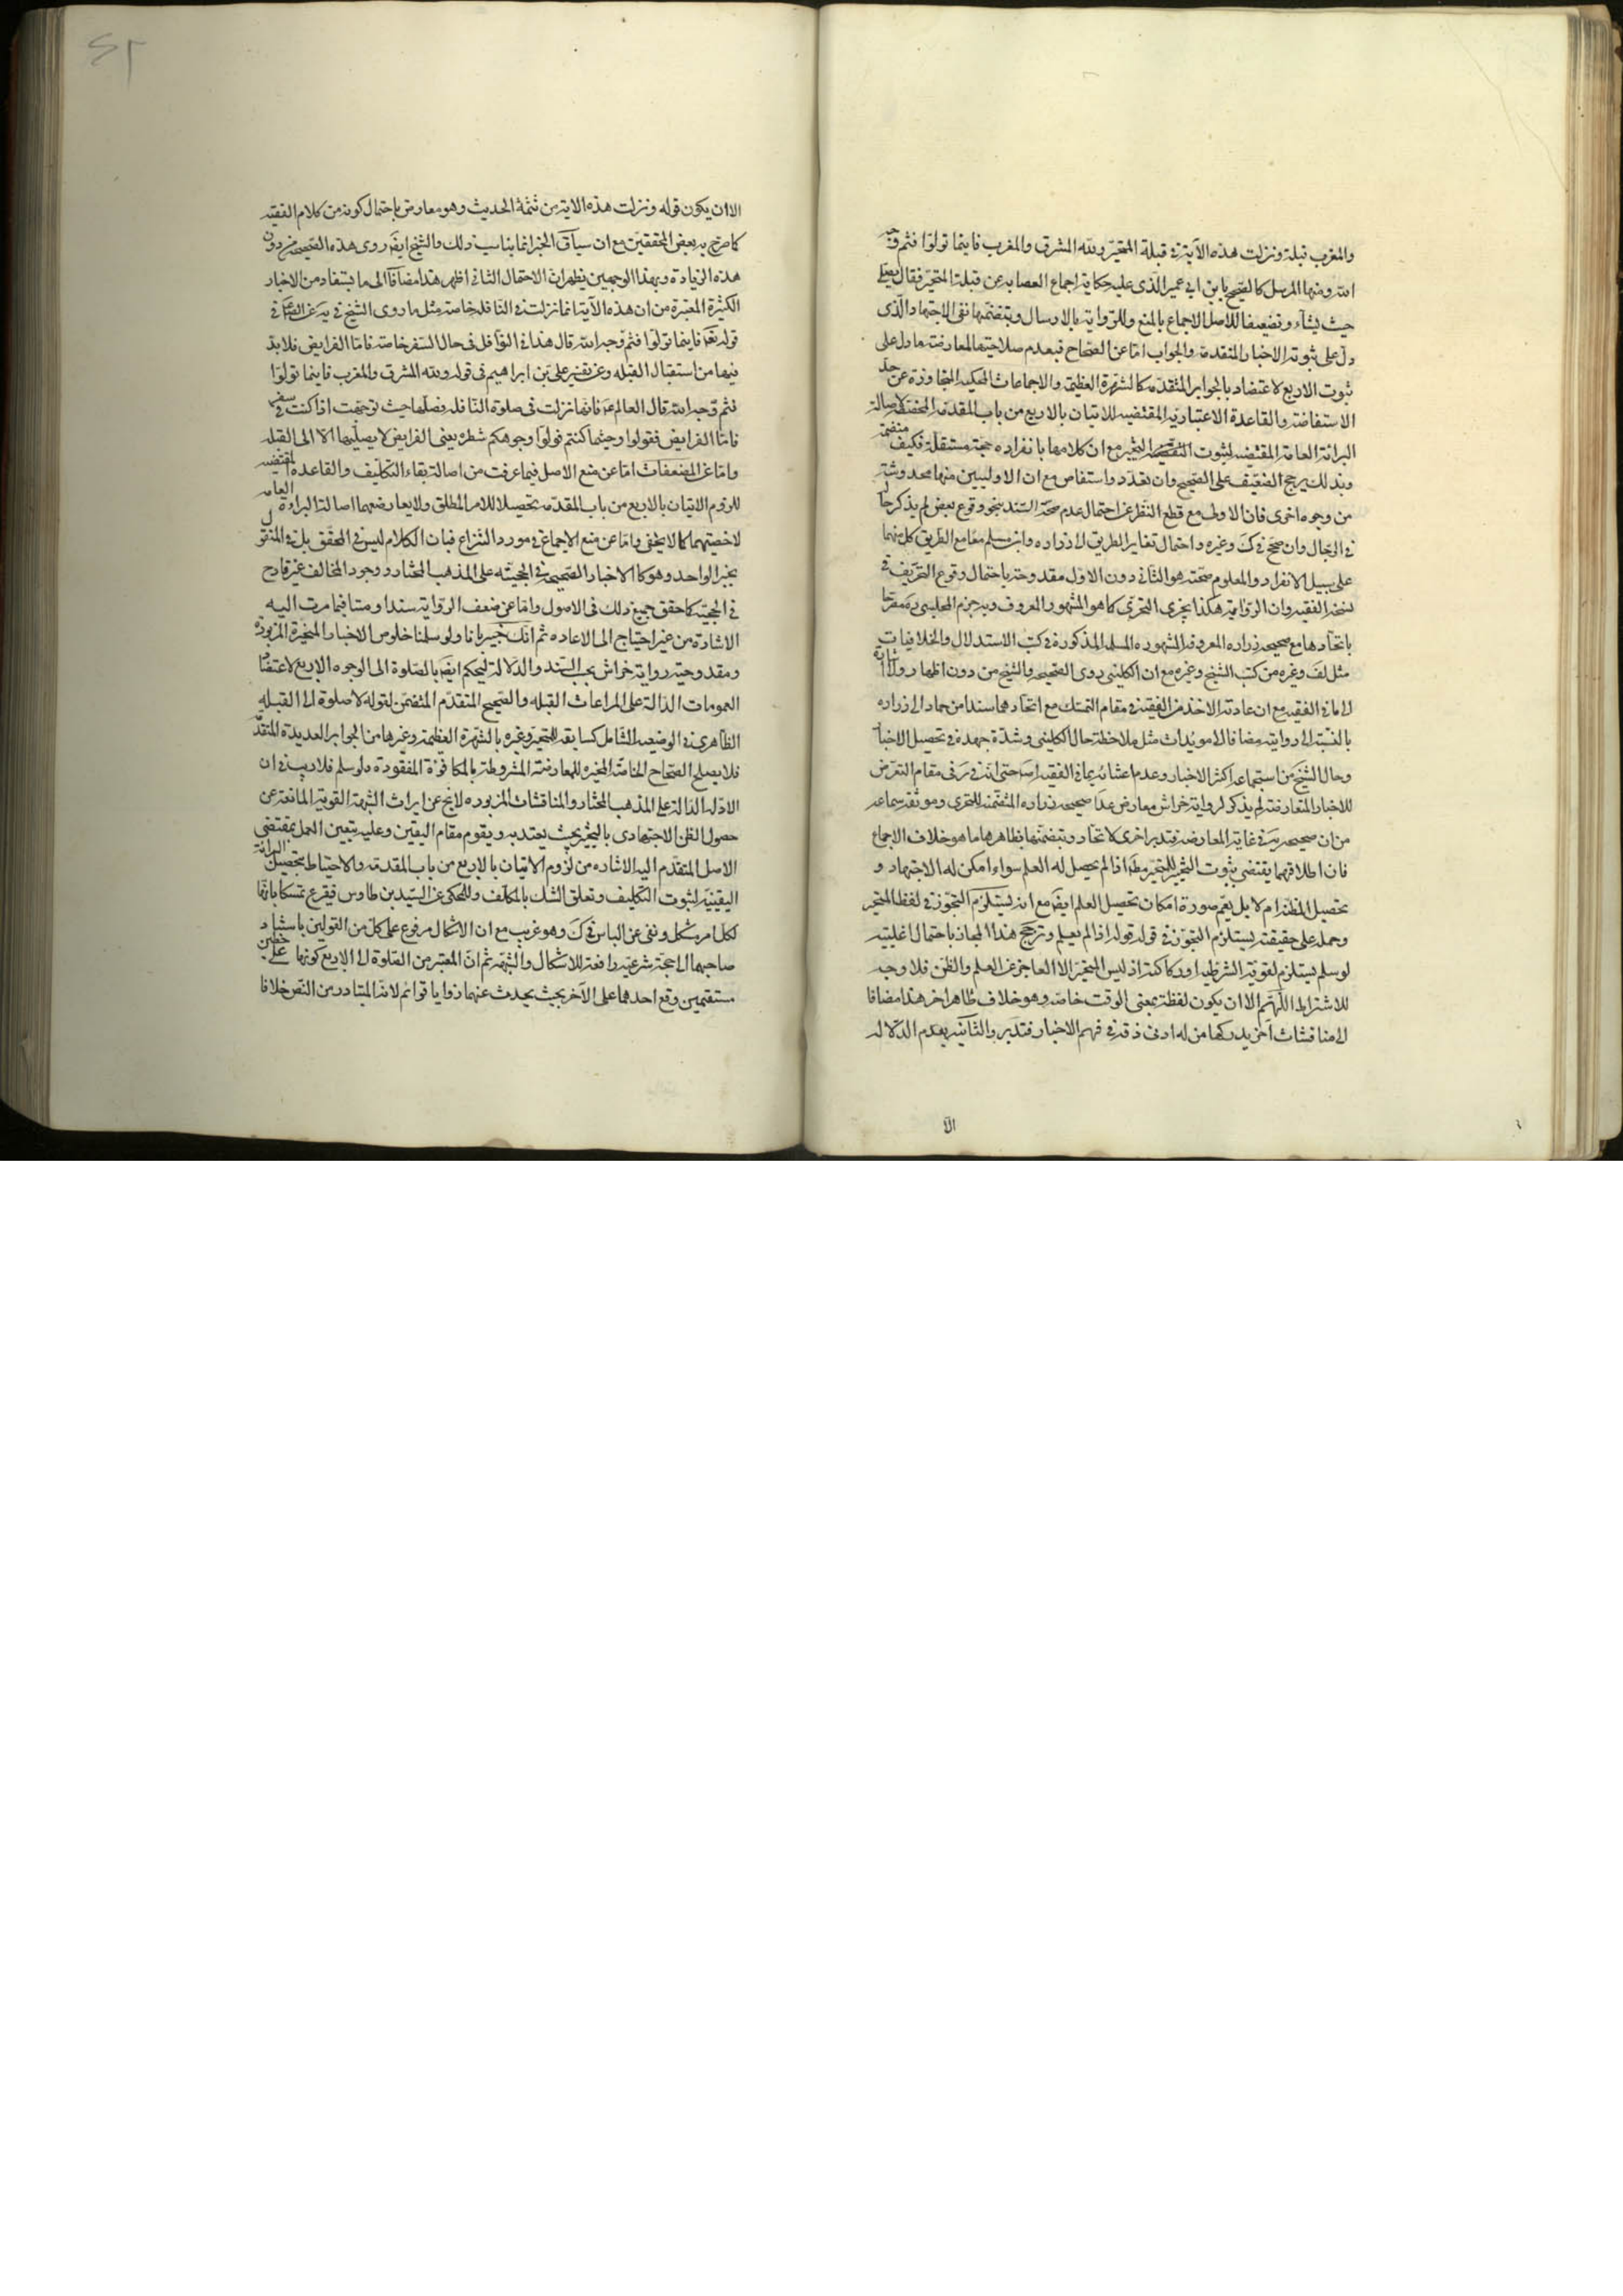 والمغرب قبلة ونزلت هذه الآية في قبلة المتحيّر ولله المشرق والمغرب فاينما تولوا فثم وجه
الله ومنها المرسل كالصحيح بابن ابي عمير الذي عليه حكاية اجماع العصابه عن قبلة المتحيّر فقال يصلي
حيث يشاء وتضعيفا للاصل الاجماع بالمنع وللرواية بالارسال وبتضمنها نفي الاجتهاد الذي
دل على ثبوته الاخبار المتقدمة والجواب امّا عن الصحاح فبعدم صلاحيتها لمعارضته ما دل على
ثبوت الاربع لاعتضاد بالجوابر المتقدمة كالشهرة العظيمة والاجماعات المحكيه المتجاوزه عن حد
الاستفاضة والقاعدة الاعتبارية المقتضيه للاتيان بالاربع من باب المقدمة المخصصة لاصالة
البرائة العامة المقتضيه لثبوت التخيير مع ان كلا منها بانفراده حجة مستقلة فكيف منضمة
وبذلك يرجح الضعيف على الصحيح وان تعدد واستفاض مع ان الاوليين منها مخدوشة
من وجوه اخرى فان الاولى مع قطع النظر عن احتمال عدم صحة السند بنحو وقوع بعض لم يذكر حاله
في الرجال وان صحح في ك وغيره واحتمال تغاير الطريق الى زراره وابن مسلم مقامع الطريق كل منهما
على سبيل الانفراد والمعلوم صحته هو الثاني دون الاول مقدوحة باحتمال وقوع التحريف في
نسخة الفقيه وان الرواية هكذا يجزي التحري كما هو المشهور المعروف وبه جزم المجلسي ره مصرحا
باتحادها مع صحيحه زراره المعروفه المشهوره المسلمه المذكورة في كتب الاستدلال والخلافيات
مثل لف وغيره من كتب الشيخ وغيره مع ان الكليني روى الصحيحه والشيخ من دون اظهار ولا اشارة
الى ما في الفقيه مع ان عادته الاخذ من الفقيه في مقام التمسك مع اتحادهما سندا من حماد الى زراره
بالنسبة الى روايته مضافا الى مويدات مثل ملاحظة حال الكليني وشدة جهده في تحصيل الاخبار
وحال الشيخ من استجماعه اكثر الاخبار وعدم اعتنائه بما في الفقيه اصلا حتى انه في مقام التعرض
للاخبار المتعارضة لم يذكر لرواية خراش معارض عدا صحيحه زراره المتضمنه للتحري وموثقه سماعه
من ان صحيحه في غاية المعارضه فتدبر اخرى كاتحاد وبتضمنها بظاهرها ما هو خلاف الاجماع
فان اطلاقهما يقتضي بثبوت التخيير للمتحير مطلقا اذا لم يحصل له العلم سواء امكن له الاجتهاد و
تحصيل الظن ام لا بل يعم صورة امكان تحصيل العلم ايضا مع انه يستلزم التجوز في لفظ المتحير
وحمله على حقيقته يستلزم التجوز في قوله اذا لم يعلم وترجيح هذا المجاز باحتمال اغلبيته
لو سلم يستلزم لغوية الشرطيه اوركاكته اذ ليس المتحير الا العاجز عن العلم والظن فلا وجه
للاشتراط اللهم الا ان يكون لفظة بمعنى الوقت خاصة وهو خلاف ظاهر اخر هذا مضافا
الى مناقشات اخر يدركها من له ادنى ذوق في فهم الاخبار فتدبر والثانيه بعدم الدلالة
الا
الا ان يكون قوله ونزلت هذه الاية من تتمة الحديث وهو معارض باحتمال كونه من كلام الفقيه
كما صرح به بعض المحققين مع ان سياق الخبر انما يناسب ذلك والشيخ ايضا روى هذه الصحيحه من دون
هذه الزيادة وبهذا الوجهين يظهر ان الاحتمال الثاني اظهر هذا مضافا الى ما يستفاد من الاخبار
الكثيرة المعتبرة من ان هذه الآية انما نزلت في النافله خاصة مثل ما روى الشيخ في يه عن الصادق في
قوله تعالى فاينما تولوا فثم وجه الله قال هذا في النوافل في حال السفر خاصة فاما الفرايض فلا بد
فيها من استقبال القبله وعن تفسير علي بن ابراهيم في قوله ولله المشرق والمغرب فاينما تولوا
فثم وجه الله قال العالم ع فانها نزلت في صلوة النافله فصلها حيث توجهت اذا كنت في سفر
فاما الفرايض فقوله وحيثما كنتم فولوا وجوهكم شطره يعني الفرايض لا يصليها الا الى القبله
وامّا عن المضعفات امّا عن منع الاصل فبما عرفت من اصالة بقاء التكليف والقاعدة المقتضيه
للزوم الاتيان بالاربع من باب المقدمه تحصيلا للامر المطلق ولا يعارضهما اصالة البراءة العامه
لاخصيتهما كما لا يخفى وامّا عن منع الاجماع في مورد النزاع فبان الكلام ليس في المحقق بل في المنقول
بخبر الواحد وهو كالاخبار الصحيحه في الحجيته على المذهب المختار ووجود المخالف غير قادح
في الحجية كما حقق جميع ذلك في الاصول وامّا عن ضعف الرواية سندا ومتنا فبما مرت اليه
الاشارة من غير احتياج الى الاعاده ثم انك خبير بانا ولو سلمنا خلوص الاخبار المتحيرة المزبورة
ومقدوحية رواية خراش بحسب السند والدلالة لنحكم ايضا بالصلوة الى الوجوه الاربع لاعتضاد
العمومات الدالة على المراعات القبله والصحيح المتقدم المتضمن لقوله لا صلوة الا الى القبله
الظاهري في الوضعيه الشامل كسابقه للمتحير وغيره بالشهرة العظيمة وغيرها من الجوابر العديدة المتقدمة
فلا يصلح الصحاح الخاصة المخيره للمعارضته المشروطة بالمكافؤة المفقودة ولو سلم فلا ريب في ان
الادله الدالة على المذهب المختار والمناقشات المزبوره لا نخ عن ايراث الشبهة القوية المانعة عن
حصول الظن الاجتهادي بالتخيير بحيث يعتد به ويقوم مقام اليقين وعليه يتعين العمل بمقتضى
الاصل المتقدم اليه الاشاره من لزوم الاتيان بالاربع من باب المقدمه والاحتياط بتحصيل البرائة
اليقينيه لثبوت التكليف وتعلق الشك بالمكلف والمحكي عن السيد بن طاوس فيقرع تمسكا بانها
لكل امر مشكل ونفى عن الباس في ك وهو غريب مع ان الاشكال مرفوع على كل من القولين باستناد
صاحبها الى حجة شرعيه رافعة للاشكال والشبهة ثم ان المعتبر من الصلوة الى الاربع كونها على خطين
مستقيمين وقع احدهما على الآخر بحيث يحدث عنهما زوايا قوائم لانه المتبادر من النص خلافا